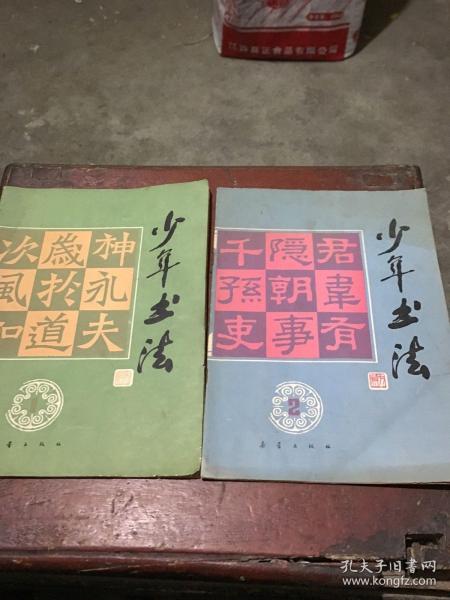 次歲神
風於永
和道夫
少年书法
1
千隱君
孫朝韋
吏事有
少年书法
2
孔夫子旧书网
www.kongfz.com